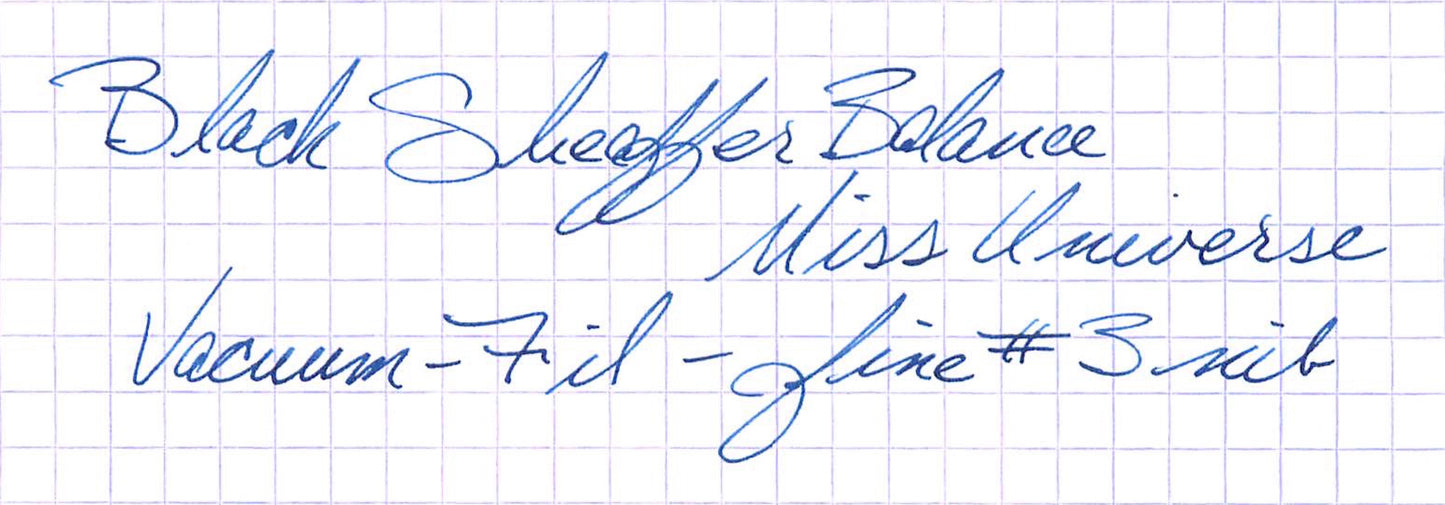 Black Sheaffer Balance
Miss Universe
Vacuum-Fil - fine #3 nib